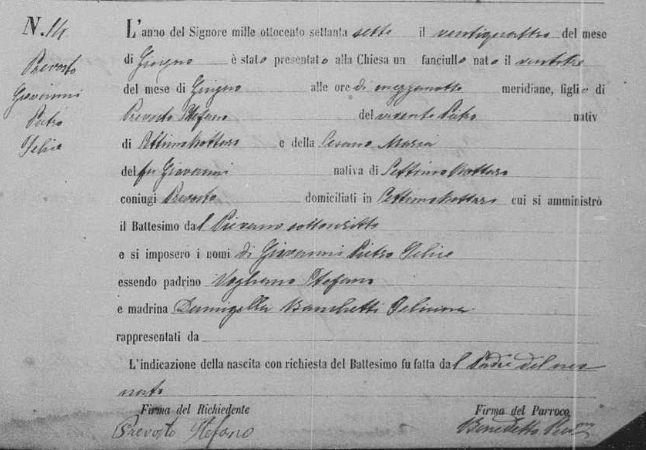 N. 14
Prevosto
Giovanni
Pietro
Felice
L'anno del Signore mille ottocento settanta sette il ventiquattro del mese
di Giugno è stato presentato alla Chiesa un fanciullo nato il ventitre
del mese di Giugno alle ore di mezzanotte meridiane, figlio di
Prevosto Stefano del vivente Pietro nativ
di Settimo Rottaro e della Cesano Maria
del fu Giovanni nativa di Settimo Rottaro
coniugi Prevosto domiciliati in Settimo Rottaro cui si amministrò
il Battesimo dal Pievano sottoscritto
e si imposero i nomi di Giovanni Pietro Felice
essendo padrino Vogliano Stefano
e madrina Damigella Banchetti
rappresentati da
L'indicazione della nascita con richiesta del Battesimo fu fatta dal Padre del neo
nato
Firma del Richiedente
Firma del Parroco
Prevosto Stefano
Benedetto